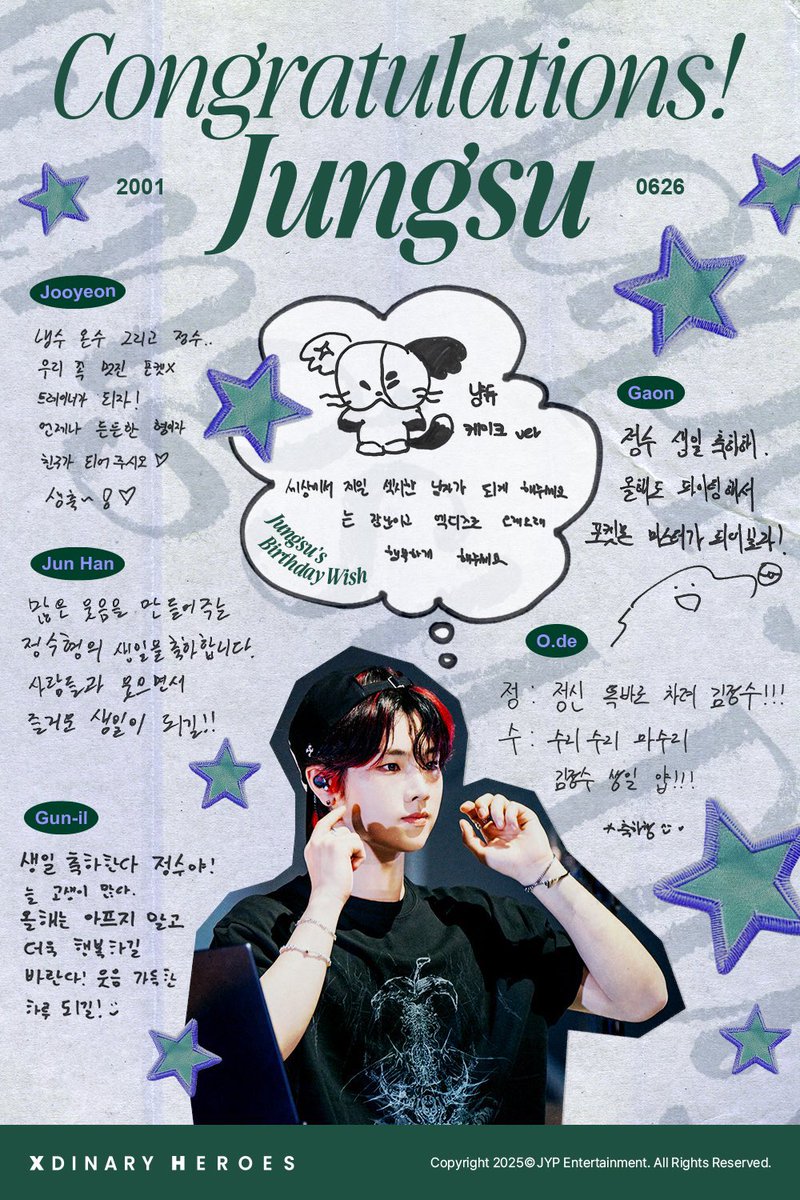 Congratulations!
Jungsu
2001
0626
Jooyeon
냉수 온수 그리고 정수..
우리 꼭 멋진 포켓X
트레이너가 되자!
언제나 든든한 형이자
친구가 되어 주시오 ♡
생축~ ♡
냥뮤
케이크 ver
세상에서 제일 섹시한 남자가 되게 해주세요
는 장난이고 엑디즈로 오래오래
행복하게 해주세요
Jungsu's
Birthday Wish
Gaon
정수 생일 축하해.
올해도 파이팅해서
포켓몬 마스터가 되어보라!
Jun Han
많은 웃음을 만들어주는
정수형의 생일을 축하합니다.
사람들과 웃으면서
즐거운 생일이 되길!!
O.de
정 : 정신 똑바로 차려 김정수!!!
수 : 수리수리 마수리
김정수 생일 얍!!!
축하행
Gun-il
생일 축하한다 정수야!
늘 고생이 많다.
올해는 아프지 말고
더욱 행복하길
바란다! 웃음 가득한
하루 되길! :)
XDINARY HEROES
Copyright 2025© JYP Entertainment. All Rights Reserved.